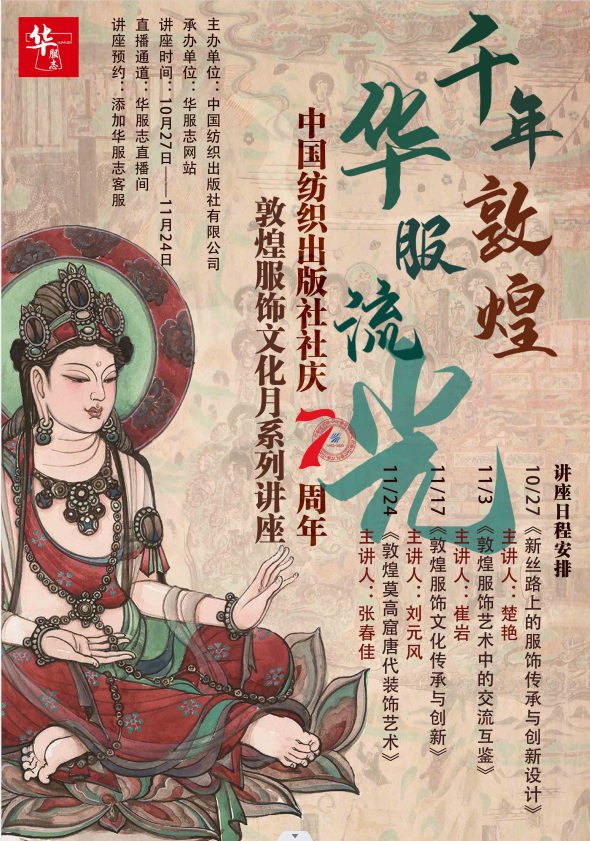 华服志
千年敦煌
华服流光
中国纺织出版社社庆70周年
敦煌服饰文化月系列讲座
主办单位：中国纺织出版社有限公司
承办单位：华服志网站
讲座时间：10月27日——11月24日
直播通道：华服志直播间
讲座预约：添加华服志客服
讲座日程安排
10/27《新丝路上的服饰传承与创新设计》
主讲人：楚艳
11/3《敦煌服饰艺术中的交流互鉴》
主讲人：崔岩
11/17《敦煌服饰文化传承与创新》
主讲人：刘元风
11/24《敦煌莫高窟唐代装饰艺术》
主讲人：张春佳